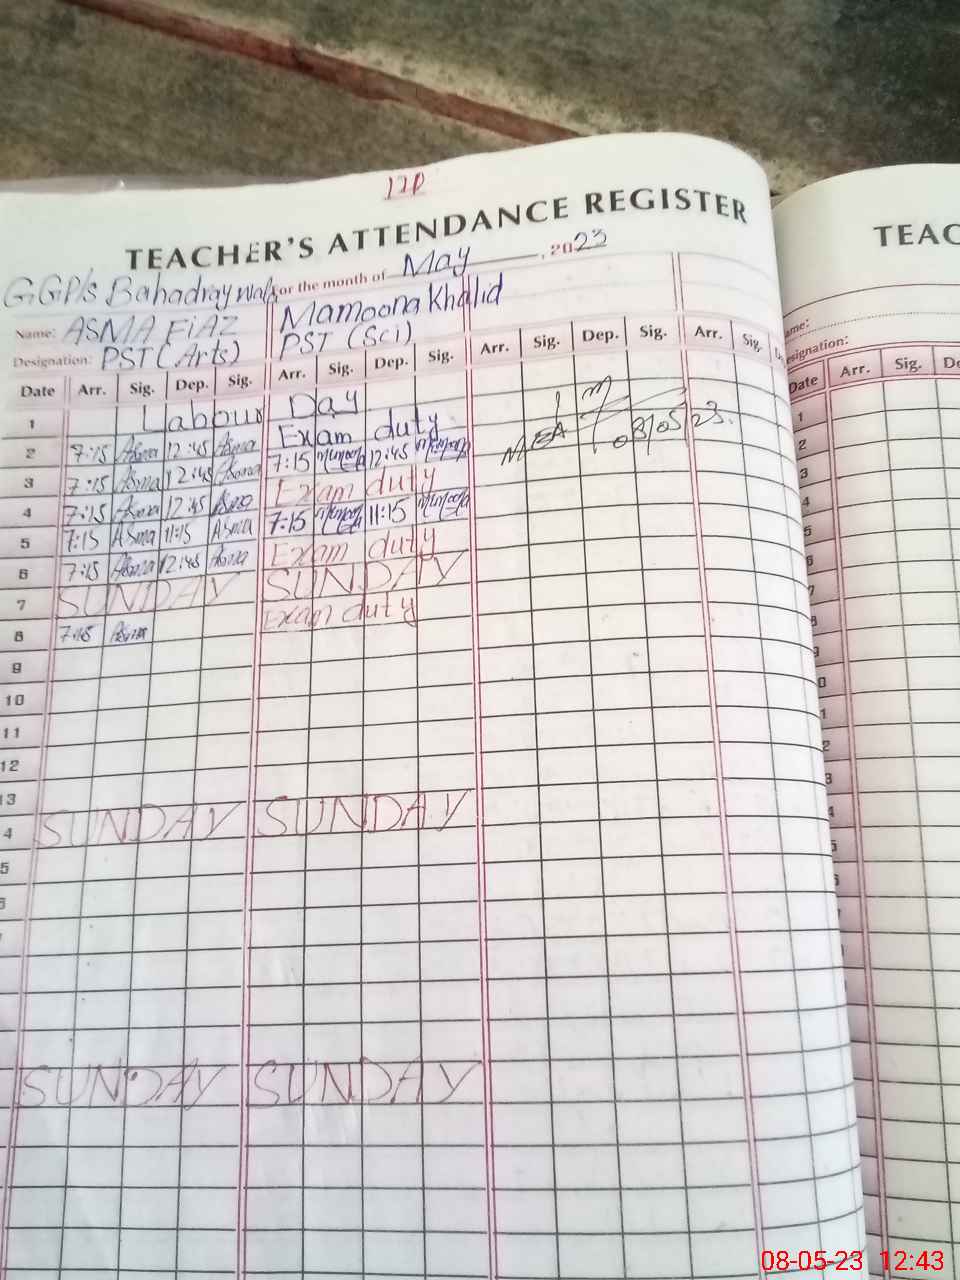 17P
TEACHER'S ATTENDANCE REGISTER
For the month of May, 2023
Name: ASMA FiAZ Mamoona Khalid
Designation: PST (Arts) PST (Sci)
Date Arr. Sig. Dep. Sig. Arr. Sig. Dep. Sig. Arr. Sig. Dep. Sig. Arr. Sig.
1 Labour Day
2 7:15 Asma 12:45 Asma Exam duty
3 7:15 Asma 12:45 Asma 7:15 12:45
4 7:15 Asma 12:45 Asma Exam duty
5 7:15 Asma 11:15 Asma 7:15 11:15
6 7:15 Asma 12:45 Asma Exam duty
7 SUNDAY SUNDAY
8 7:15 Asma Exam duty
MEA
03/05/23.
9
10
11
12
13
4 SUNDAY SUNDAY
5
SUNDAY SUNDAY
TEAC
ame:
esignation:
Date Arr. Sig. De
1
2
3
4
5
6
7
8
9
0
1
2
3
4
5
6
08-05-23 12:43